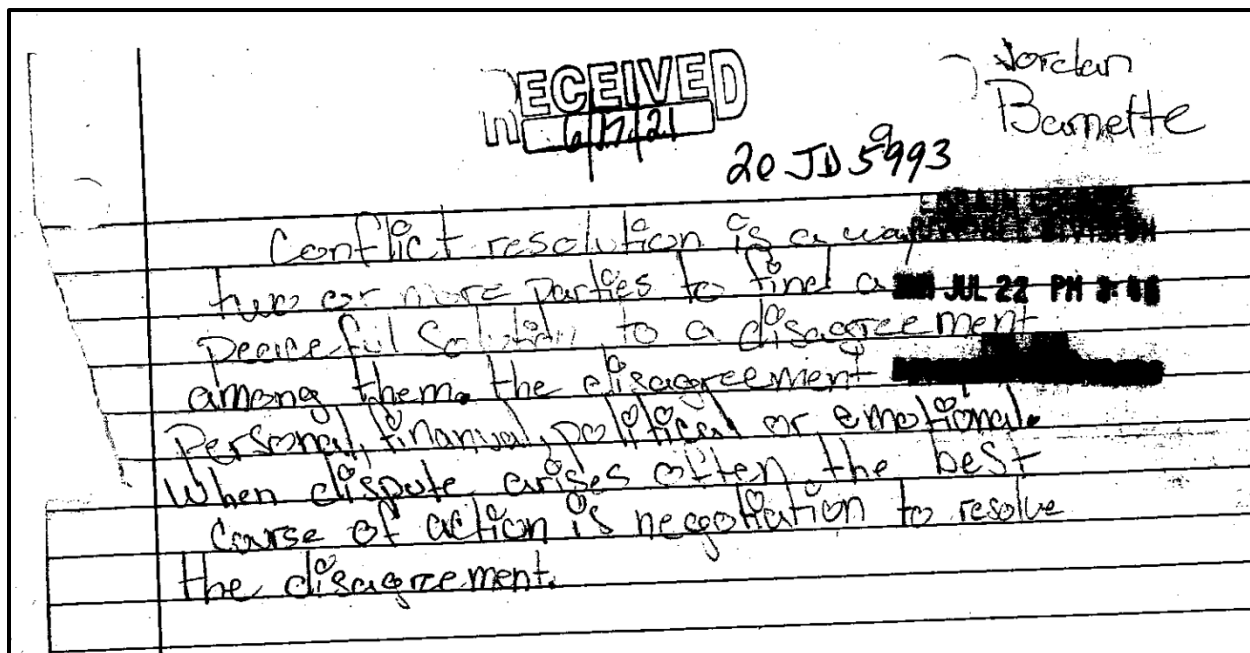 Jordan
Barnette
RECEIVED
6/17/21
20 JD 5993
Conflict resolution is a way
two or more parties to find a
JUL 22 PM 3:46
peaceful solution to a disagreement
among them. the disagreement
Personal, finanual, political or emotional.
When dispute arises often the best
course of action is negotiation to resolve
the disagreement.